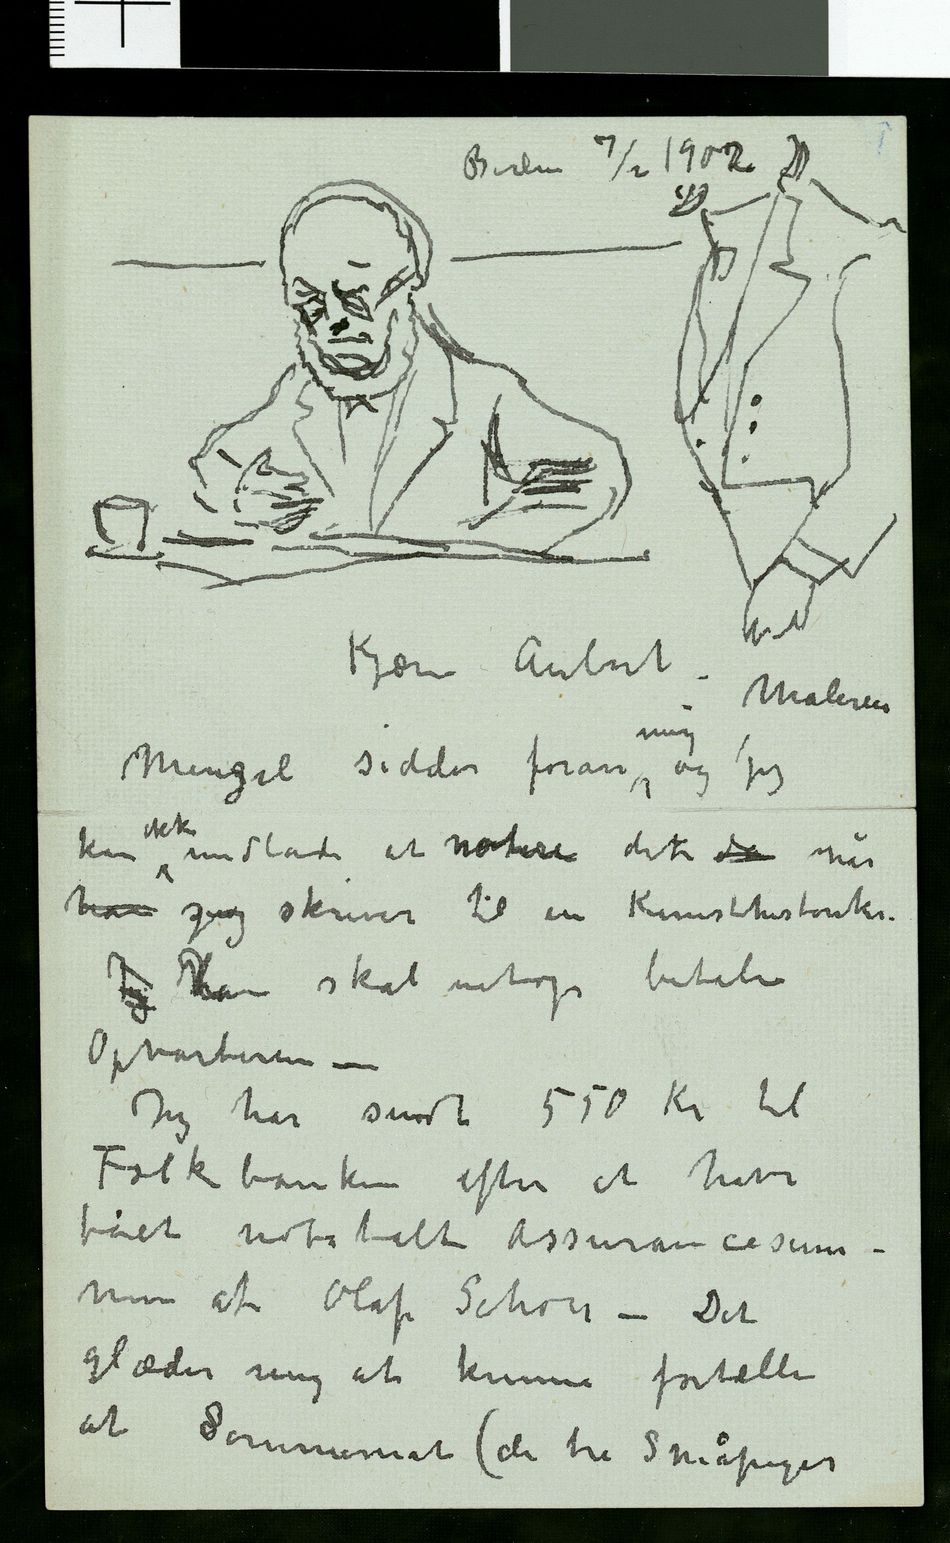 Berlin 7/2 1902
Kjære Aubert –
Maleren
Menzel sidder foran mig og jeg
kan ikke undlade at notere dette da når
han jeg skriver til en Kunsthistoriker.
Jeg Han skal netop betale
Opvarteren —
Jeg har sendt 550 Kr til
Folkebanken efter at have
fået udbetalt Assurancesum-
men af Olaf Schou — Det
glæder mig at kunne fortælle
at Sommernat (de tre Småpiger